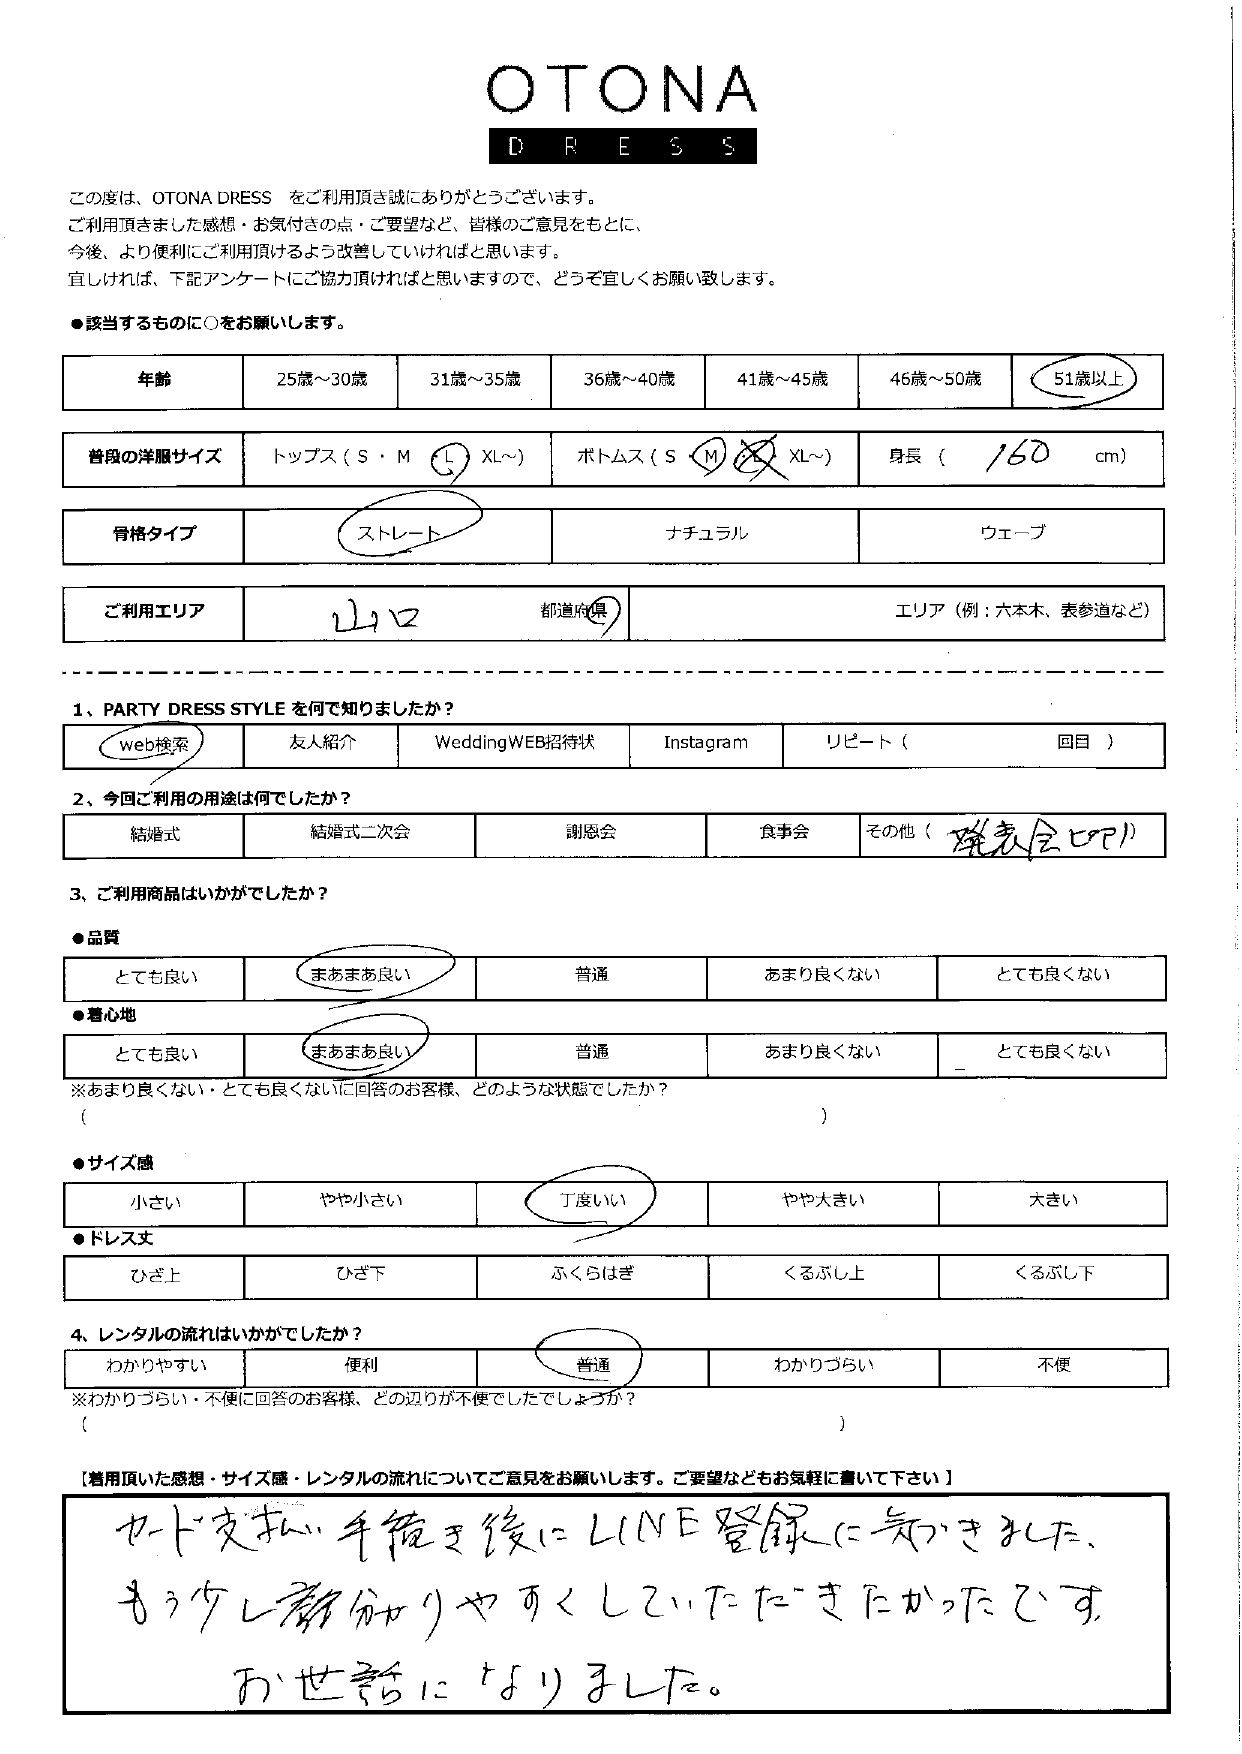 OTONA
DRESS
この度は、OTONA DRESS をご利用頂き誠にありがとうございます。
ご利用頂きました感想・お気付きの点・ご要望など、皆様のご意見をもとに、
今後、より便利にご利用頂けるよう改善していければと思います。
宜しければ、下記アンケートにご協力頂ければと思いますので、どうぞ宜しくお願い致します。
●該当するものに○をお願いします。
年齢 25歳～30歳 31歳～35歳 36歳～40歳 41歳～45歳 46歳～50歳 51歳以上
普段の洋服サイズ トップス ( S ・ M L XL～) ボトムス ( S ・ M ・ L XL～) 身長 ( 160 cm)
骨格タイプ ストレート ナチュラル ウェーブ
ご利用エリア 山口 都道府県 エリア（例：六本木、表参道など）
1、PARTY DRESS STYLE を何で知りましたか？
web検索 友人紹介 WeddingWEB招待状 Instagram リピート ( 回目 )
2、今回ご利用の用途は何でしたか？
結婚式 結婚式二次会 謝恩会 食事会 その他 ( 発表会ピアノ)
3、ご利用商品はいかがでしたか？
●品質
とても良い まあまあ良い 普通 あまり良くない とても良くない
●着心地
とても良い まあまあ良い 普通 あまり良くない とても良くない
※あまり良くない・とても良くないに回答のお客様、どのような状態でしたか？
( )
●サイズ感
小さい やや小さい 丁度いい やや大きい 大きい
●ドレス丈
ひざ上 ひざ下 ふくらはぎ くるぶし上 くるぶし下
4、レンタルの流れはいかがでしたか？
わかりやすい 便利 普通 わかりづらい 不便
※わかりづらい・不便に回答のお客様、どの辺りが不便でしたでしょうか？
( )
【着用頂いた感想・サイズ感・レンタルの流れについてご意見をお願いします。ご要望などもお気軽に書いて下さい】
カード支払い手続き後にLINE登録に気づきました、
もう少し分かりやすくしていただきたかったです。
お世話になりました。